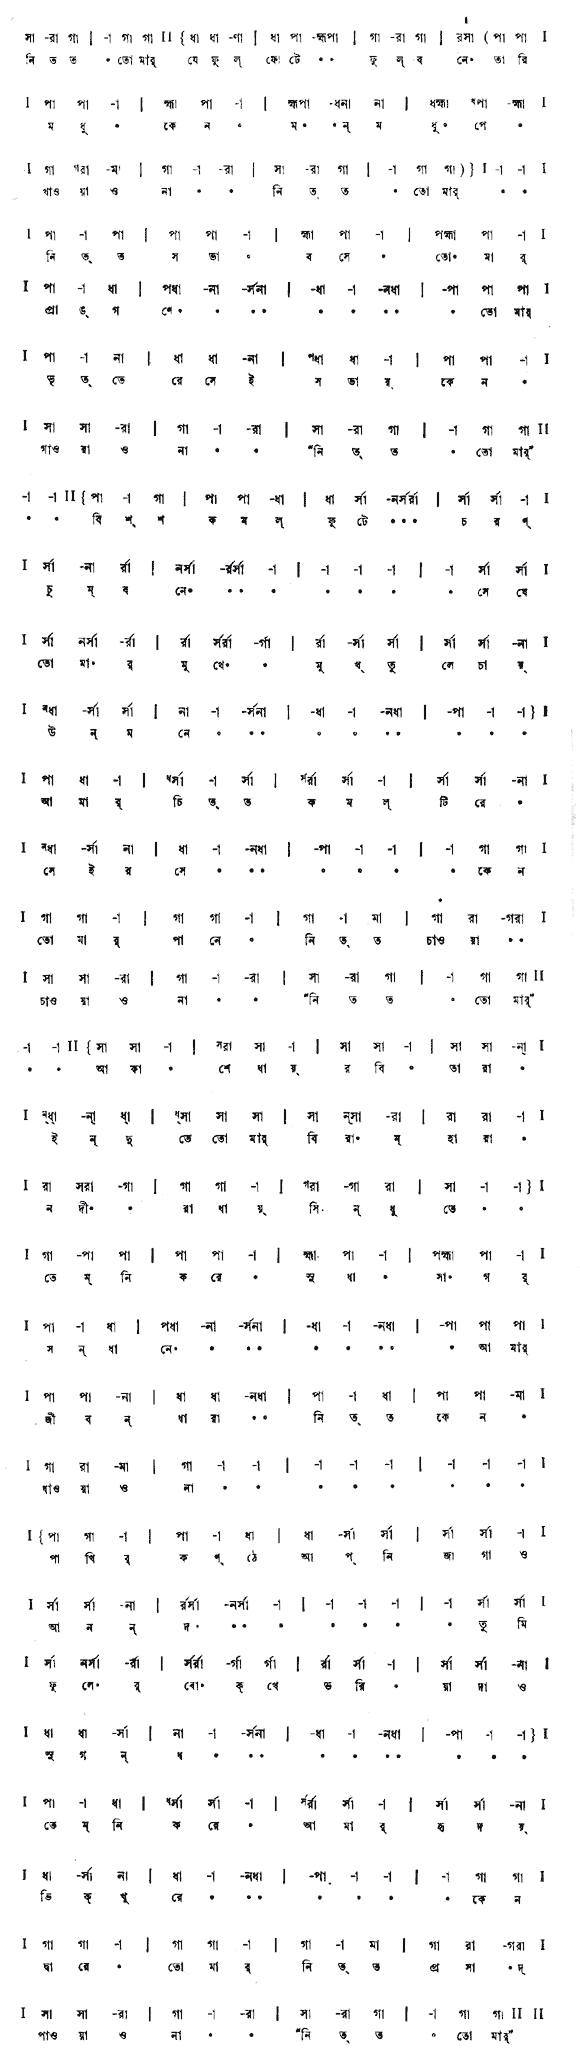 সা -রা গা | -া গা গা II { ধা ধা -ণা | ধা পা -হ্মপা | গা -রা গা | রসা ( পা পা I
নি ত ত • তোমার্ যে ফুল্ ফোটে • • ফুল্ ব নে• তারি
I পা পা -া | হ্মা পা -া | হ্মপা -ধনা না | ধহ্মা ধপা -হ্মা I
ম ধু • কে ন • ম• ন্ ম ধু• পে •
I গা গরা -মা | গা -া -রা | সা -রা গা | -া গা গা ) } I -া -া I
খাও য়া ও না • • নি ত্ ত • তোমার্ • •
I পা -া পা | পা পা -া | হ্মা পা -া | পহ্মা পা -া I
নি ত্ ত স ভা • ব সে • তো• মা র্
I পা -া ধা | পধা -না -র্সনা | -ধা -া -নধা | -পা পা পা I
প্রা ঙ্ গ ণে• • • • • • • • • তো মার্
I পা -া না | ধা ধা -না | পধা ধা -া | পা পা -া I
ভৃ ত্ তে রে সেই স ভা য় কে ন •
I সা সা -রা | গা -া -রা | সা -রা গা | -া গা গা II
গাও য়া ও না • • "নি ত্ ত • তো মার্"
-া -া II { পা -া গা | পা পা -ধা | ধা র্সা -নর্সর্রা | র্সা র্সা -া I
• • বি শ্ শ ক ম ল্ ফু টে • • • চ র ণ্
I র্সা -না র্রা | নর্সা -র্রর্সা -া | -া -া -া | -া র্সা র্সা I
চু ম্ ব নে• • • • • • • • সে যে
I র্সা নর্সা -র্রা | র্রা র্সর্রা -র্গা | র্রা -র্সা র্সা | র্সা র্সা -না I
তো মা• র্ মু খে• • মু খ্ তু লে চা য়্
I নধা -র্সা র্সা | না -া -র্সনা | -ধা -া -নধা | -পা -া -া } I
উ ন্ ম নে • • • • • • • • • •
I পা ধা -া | ধর্সা -া র্সা | র্সর্রা র্সা -া | র্সা র্সা -না I
আ মা র্ চি ত্ ত ক ম ল্ টি রে •
I নধা -র্সা না | ধা -া -নধা | -পা -া -া | -া গা গা I
সে ই র সে • • • • • • • কে ন
I গা গা -া | গা গা -া | গা -া মা | গা রা -গরা I
তো মা র্ পা নে • নি ত্ ত চাও য়া • •
I সা সা -রা | গা -া -রা | সা -রা গা | -া গা গা II
চাও য়া ও না • • "নি ত ত • তো মার্"
-া -া II { সা সা -া | সরা সা -া | সা সা -া | সা সা -না্ I
• • আ কা • শে ধা য়্ র বি • তা রা •
I ন্ধা্ -না্ ধা্ | ধ্সা সা সা | সা ন্সা -রা | রা রা -া I
ই ন্ দু তে তো মার্ বি রা• ম্ হা রা •
I রা সরা -গা | গা গা -া | গরা -গা রা | সা -া -া } I
ন দী• • রা ধা য়্ সি ন্ ধু তে • •
I গা -পা পা | পা পা -া | হ্মা পা -া | পহ্মা পা -া I
তে ম্ নি ক রে • সু ধা • সা• গ র্
I পা -া ধা | পধা -না -র্সনা | -ধা -া -নধা | -পা পা পা I
স ন্ ধা নে• • • • • • • • • আ মার্
I পা পা -না | ধা ধা -নধা | পা -া ধা | পা পা -মা I
জী ব ন্ ধা রা • • নি ত্ ত কে ন •
I গা রা -মা | গা -া -া | -া -া -া | -া -া -া I
ধাও য়া ও না • • • • • • • •
I { পা গা -া | পা -া ধা | ধা -র্সা র্সা | র্সা র্সা -া I
পা খি র্ ক ণ্ ঠে আ প্ নি জা গা ও
I র্সা র্সা -না | র্রর্সা -নর্সা -া | -া -া -া | -া র্সা র্সা I
আ ন ন্ দ• • • • • • • • তু মি
I র্সা নর্সা -র্রা | র্সর্রা -র্গা র্গা | র্রা র্সা -া | র্সা র্সা -না I
ফু লে• র্ বো• ক্ খে ভ রি • য়া দা ও
I ধা ধা -র্সা | না -া -র্সনা | -ধা -া -নধা | -পা -া -া } I
সু গ ন্ ধ • • • • • • • • • •
I পা -া ধা | ধর্সা র্সা -া | র্সর্রা র্সা -া | র্সা র্সা -না I
তে ম্ নি ক রে • আ মা র্ হৃ দ য়্
I ধা -র্সা না | ধা -া -নধা | -পা -া -া | -া গা গা I
ভি ক্ খু রে • • • • • • • কে ন
I গা গা -া | গা গা -া | গা -া মা | গা রা -গরা I
দ্বা রে • তো মা র্ নি ত্ ত প্র সা • দ্
I সা সা -রা | গা -া -রা | সা -রা গা | -া গা গা II II
পাও য়া ও না • • "নি ত্ ত • তো মার্"